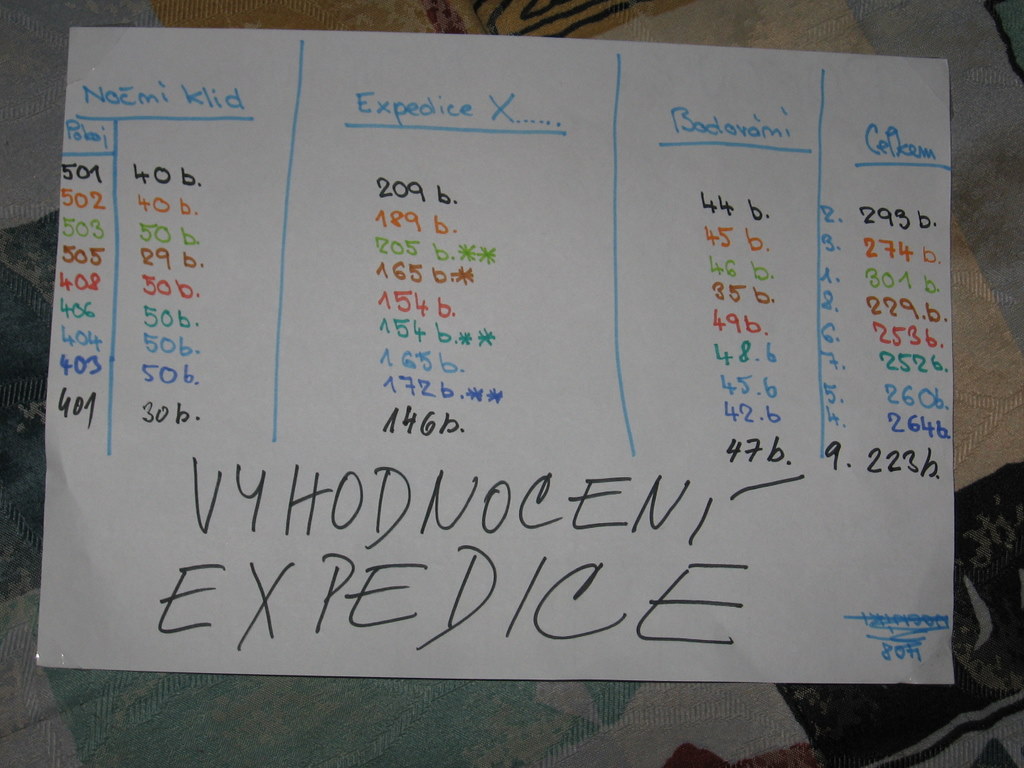 Noční klid Expedice X...... Bodování Celkem
Pokoj
501 40 b. 209 b. 44 b. 2. 293 b.
502 40 b. 189 b. 45 b. 3. 274 b.
503 50 b. 205 b.** 46 b. 1. 301 b.
505 29 b. 165 b.* 35 b. 2. 229.b.
408 50 b. 154 b. 49b. 6. 253b.
406 50b. 154 b.** 48.b 7. 252b.
404 50b. 165 b. 45.b 5. 260b.
403 50b. 172b.** 42.b 4. 264b.
401 30b. 146b. 47b. 9. 223b.
VYHODNOCENÍ
EXPEDICE